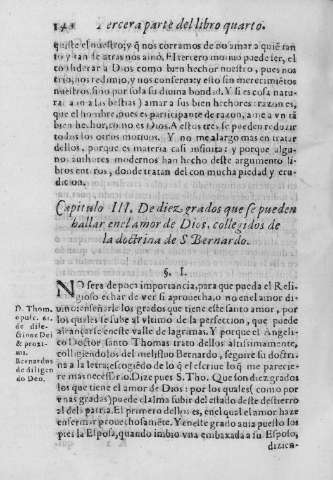 Tercera parte del libro quarto.
quiste el nuestro; y q̃ nos corramos de no amar a quiẽ tan
to y tan de atras nos amó. El tercero motiuo puede ser, el
considerar a Dios como bien hechor nuestro, pues nos
crio, nos redimio, y nos conserua, y esto sin merecimiẽtos
nuestros, sino por sola su diuina bondad. Y si es cosa natu-
ral aun a las bestias) amar a sus bien hechores: razon es,
que el hombre, pues es participante de razon, ame a vn tã
bien hechor, como es Dios. A estos tres se pueden reduzir
todos los otros motiuos. Y no me alargo mas en tratar
dellos, porque es materia casi infinita: y porque algu-
nos autores modernos han hecho deste argumento li-
bros enteros, donde tratan del con mucha piedad y eru-
dicion.
Capitulo III. De diez grados que se pueden
hallar en el amor de Dios, collegidos de
la doctrina de S. Bernardo.
§. I.
NO sera de poca importancia, para que pueda el Reli-
gioso echar de ver si aprouecha, o no en el amor di-
uino: enseñarle los grados que tiene este santo amor, por
los quales se sube al vltimo de la perfeccion, que puede
alcançarse en este valle de lagrimas. Y porque el Angeli-
co Doctor santo Thomas trato dellos altissimamente,
colligiendolos del melifluo Bernardo, seguire su doctri-
na a la letra; escogiẽdo de lo q̃ el escriue lo q̃ me parecie-
re mas necessario. Dize pues S. Tho. Que son diez grados
los que tiene el amor de Dios: por los quales( como por
vnas gradas) puede el alma subir del estado deste destierro
al del patria. El primero dellos es, en el qual el amor haze
enfermar prouechosamẽte. Y en este grado auia puesto los
pies la Esposa, quando imbio vna embaxada a su Esposo,
dizien-
D. Thom.
opusc. 61.
de dile-
ctione Dei
& proxi-
mi.
Bernardus
de diligen
do Deo.